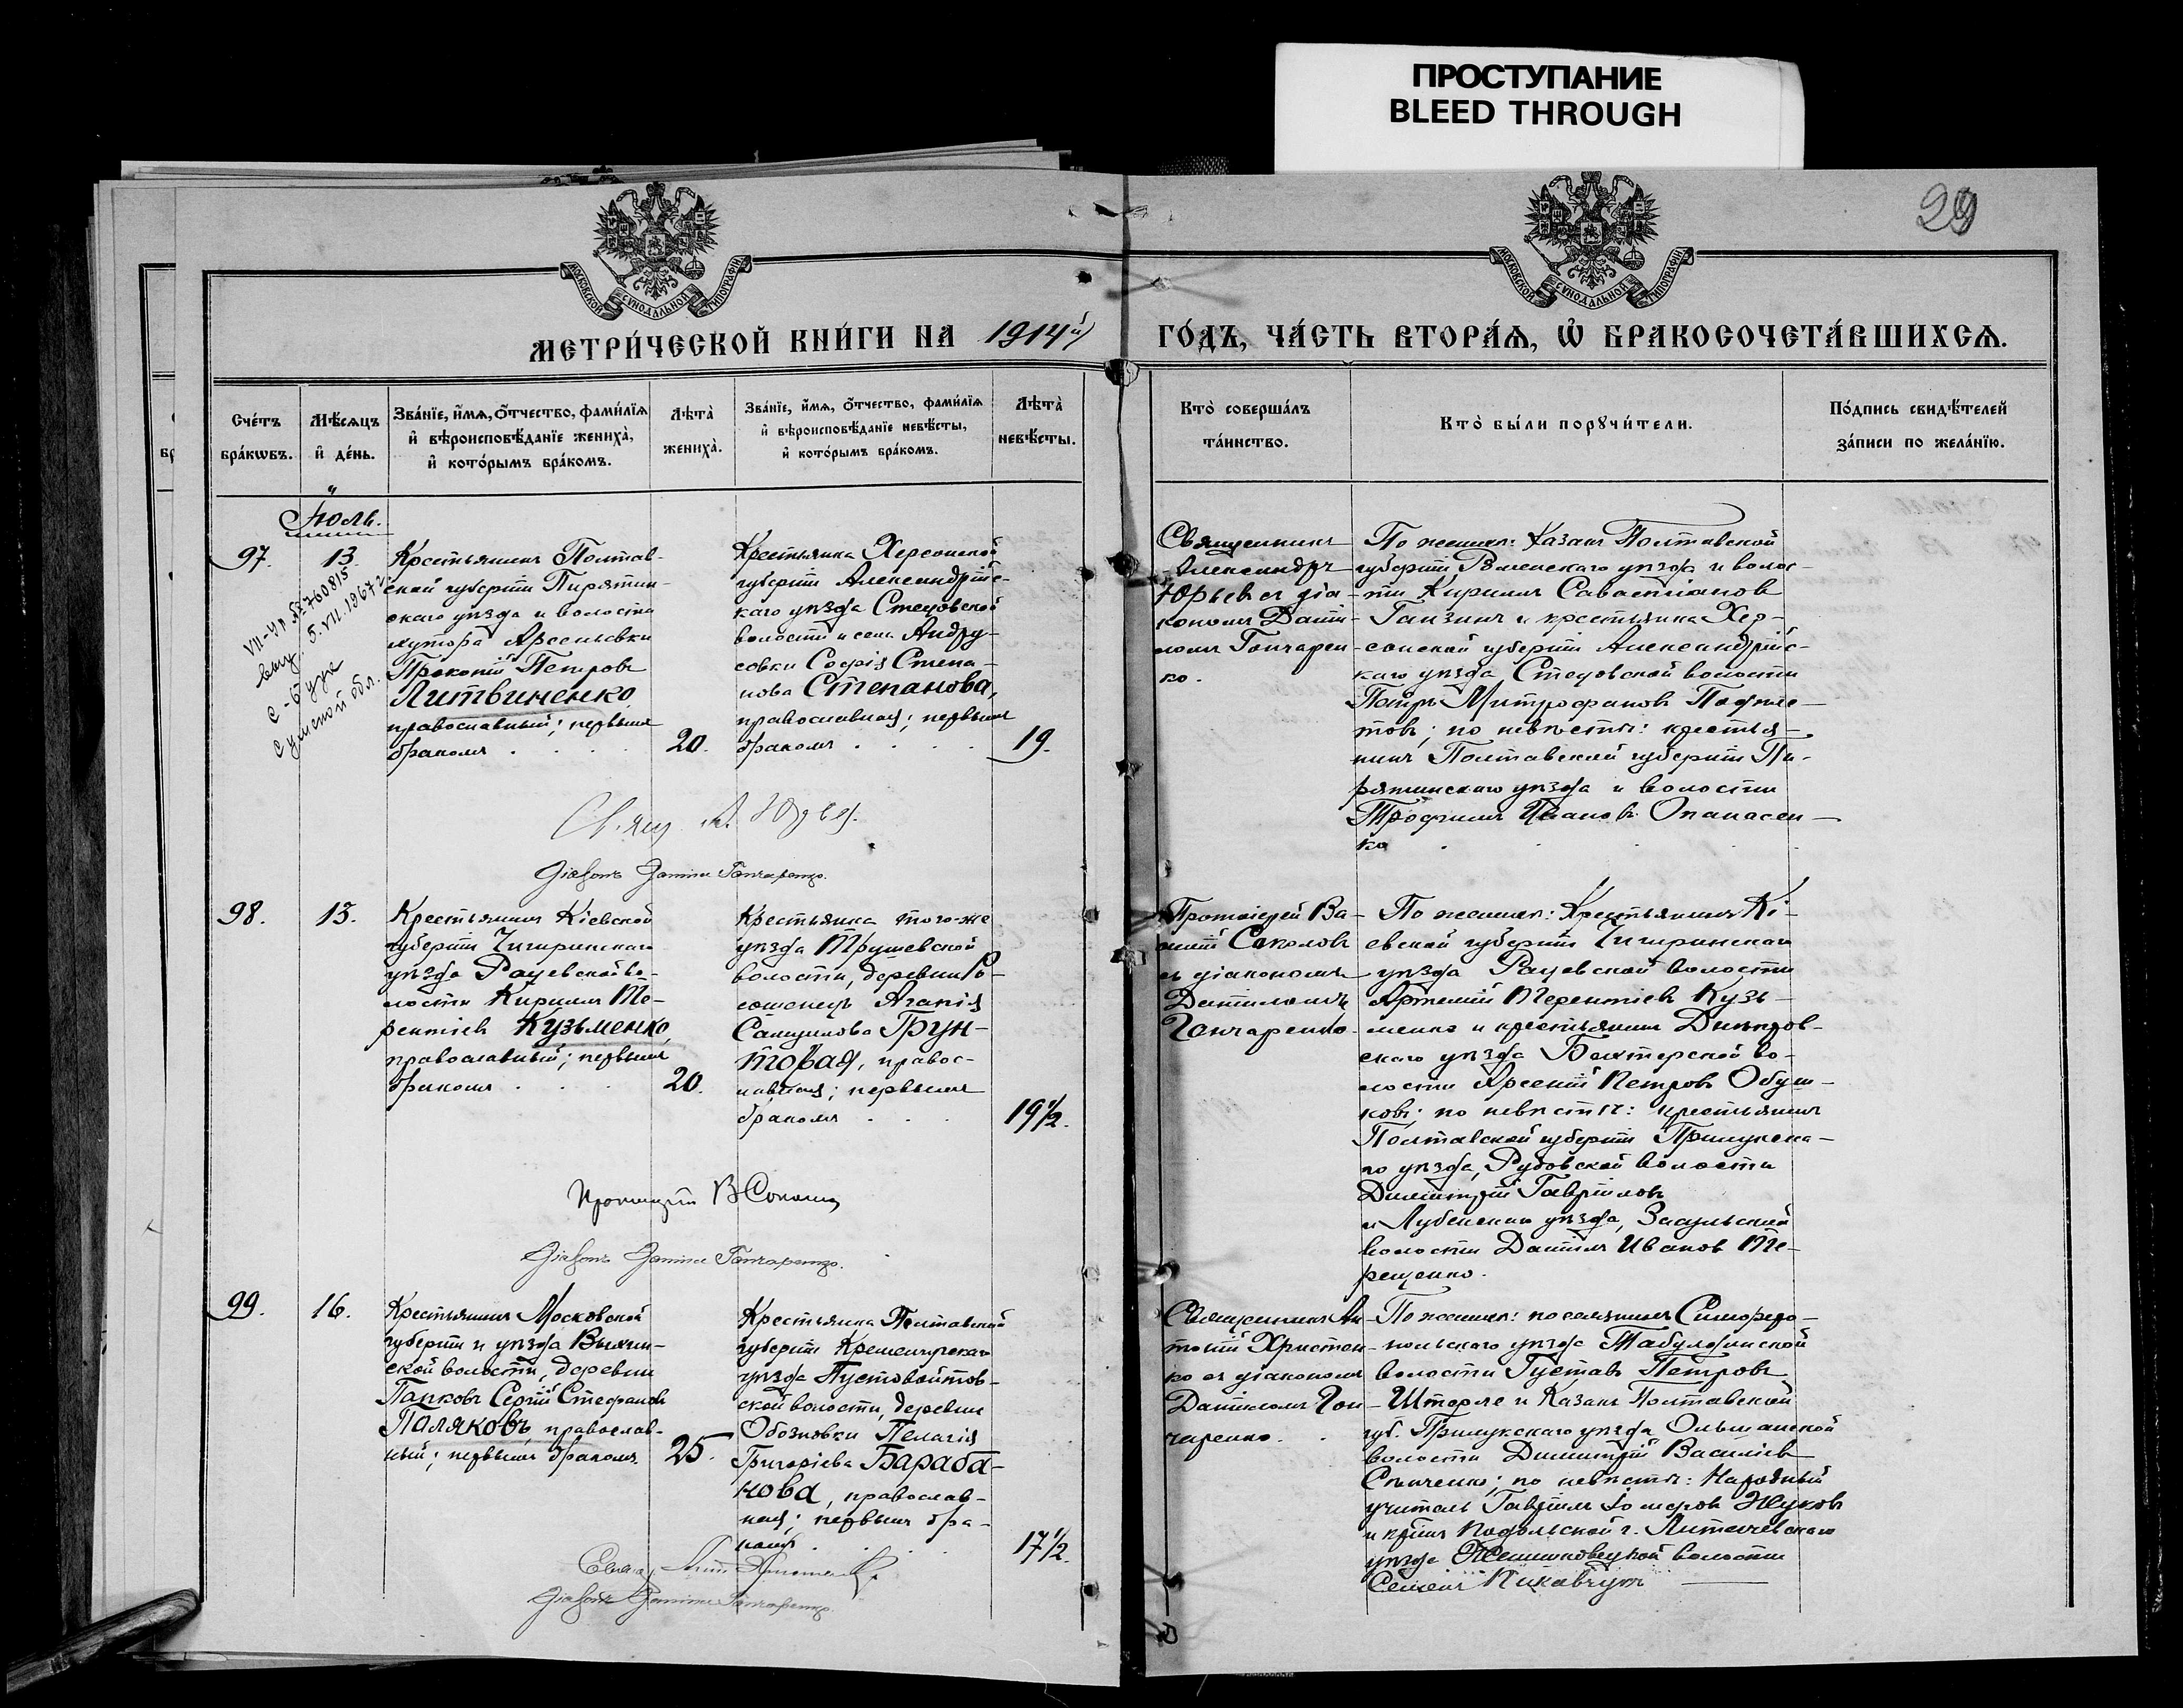 ПРОСТУПАНИЕ
BLEED THROUGH
29
МОСКОВСКОЙ СѴНОДАЛЬНОЙ ТИПОГРАФІИ
МОСКОВСКОЙ СѴНОДАЛЬНОЙ ТИПОГРАФІИ
МЕТРИ́ЧЕСКОЙ КНИ́ГИ НА 1914й
ГО́ДЪ, ЧА́СТЬ ВТОРА́Ѧ, Ѽ БРАКОСОЧЕТА́ВШИХСѦ.
Сче́тъ
бра́кѡвъ.
Мѣ́сѧцъ
и҆ де́нь.
Зва́нїе, и҆́мѧ, ѻ҆́тчество, фами́лїѧ
и҆ вѣроисповѣ́данїе жениха̀,
и҆ кото́рымъ бра́комъ.
Лѣта̀
жениха̀.
Зва́нїе, и҆́мѧ, ѻ҆́тчество, фами́лїѧ
и҆ вѣроисповѣ́данїе невѣ́сты,
и҆ кото́рымъ бра́комъ.
Лѣта̀
невѣ́сты.
Кто̀ соверша́лъ
та́инство.
Кто̀ бы́ли порꙋчи́тели.
По́дпись свидѣ́телей
за́писи по жела́нїю.
Іюль.
97.
13.
VII-Ур № 760815
выд. 5.VII.1967 г.
Сумской обл.
Крестьянинъ Полтав-
ской губерніи Пирятин-
скаго уѣзда и волости
хутора Арсеньевки
Прокопій Петровъ
Литвиненко,
православный; первымъ
бракомъ . . . .
20.
Крестьянка Херсонской
губерніи Александрій-
скаго уѣзда Стецовской
волости и села Андру-
совки Софія Степа-
нова Степанова,
православная; первымъ
бракомъ . . . .
19.
Священникъ
Александръ
Юрьевъ съ діа-
кономъ Даніи-
ломъ Гончарен-
ко.
По женихѣ: Казакъ Полтавской
губерніи Роменскаго уѣзда и волос-
ти Кириллъ Савастіановъ
Ганзинъ и крестьянинъ Хер-
сонской губерніи Александрій-
скаго уѣзда Стецовской волости
Петръ Митрофановъ
по невѣстѣ: крестья-
нинъ Полтавской губерніи Пи-
рятинскаго уѣзда и волости
Трофимъ Ивановъ Опанасен-
ко
Свящ. А. Юрьевъ.
Діаконъ Даніилъ Гончаренко.
98.
13.
Крестьянинъ Кіевской
губерніи Чигиринскаго
уѣзда Рацевской во-
лости Кириллъ Те-
рентіевъ Кузьменко,
православный; первымъ
бракомъ . . . .
20.
Крестьянка того-же
уѣзда Трушевской
волости, деревни Ро-
сошенецъ Агапія
Самуилова Грун-
товая, правос-
лавная; первымъ
бракомъ . . . .
19½.
Протоіерей Ва-
силій Соколовъ
съ діакономъ
Даніиломъ
Гончаренко.
По женихѣ: Крестьянинъ Кі-
евской губерніи Чигиринскаго
уѣзда Рацевской волости
Артемій Терентіевъ Кузь-
менко и крестьянинъ Днѣпров-
скаго уѣзда Бехтерской во-
лости Арсеній Петровъ Обуш-
ковъ; по невѣстѣ: крестьянинъ
Полтавской губерніи Прилукска-
го уѣзда, Рудовской волости
Димитрій Гавріиловъ
и Лубенскаго уѣзда, Засульской
волости Даніилъ Ивановъ Те-
рещенко.
Протоіерей В Соколовъ
Діаконъ Даніилъ Гончаренко.
99.
16.
Крестьянинъ Московской
губерніи и уѣзда Выхин-
ской волости, деревни
Папковъ Сергій Стефановъ
Паляковъ, православ-
ный; первымъ бракомъ.
25.
Крестьянка Полтавской
губерніи Кременчугскаго
уѣзда Пустовойтов-
ской волости, деревни
Обозновки Пелагія
Григоріева Бараба-
нова, православ-
ная; первымъ бра-
комъ . . . .
17½.
Священникъ Ан-
тоній Христен-
ко съ діакономъ
Даніиломъ Гон-
чаренко.
По женихѣ: поселянинъ Симферо-
польскаго уѣзда Табулдинской
волости Густавъ Петровъ
Шторле и Казакъ Полтавской
губ. Прилукскаго уѣзда Ольшанской
волости Димитрій Василіевъ
по невѣстѣ: Народный
учитель Гавріилъ Жуковъ
и кр-нинъ Подольской г. Литичевскаго
уѣзда волости
Семенъ
Свящ. Антоній Христенко.
Діаконъ Даніилъ Гончаренко.